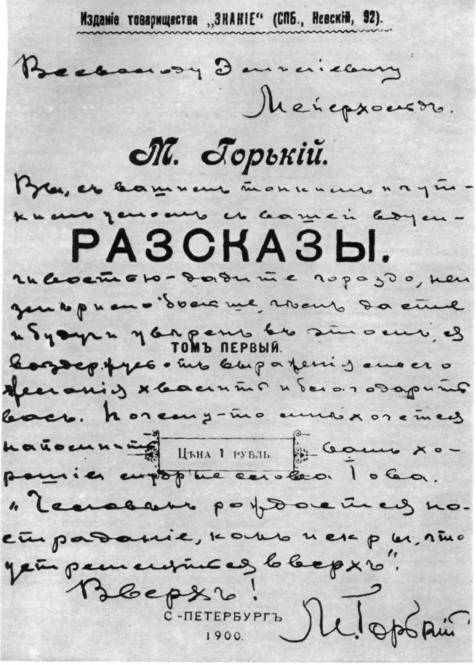 Изданіе товарищества „ЗНАНІЕ“ (СПБ., Невскій, 92).
Всеволоду Эмиліевичу
Мейерхольдъ.
М. Горькій.
Вы, съ вашимъ тонкимъ и чут-
кимъ умомъ, съ вашей вдум-
РАЗСКАЗЫ.
чивостью - дадите гораздо, неи-
змѣримо больше, чѣмъ даете
и будучи увѣренъ въ этомъ, я
ТОМЪ ПЕРВЫЙ.
воздержусь отъ выраженія моего
желанія хвалить и благодарить
васъ. Почему-то мнѣ хочется
напомнить вамъ хо-
ЦѢНА 1 РУБЛЬ.
рошія слова Іова.
„Человѣкъ рождается на-
страданіе, какъ искры, что
устремляются вверхъ“.
Вверхъ!
С.-ПЕТЕРБУРГЪ
1900.
М. Горькій